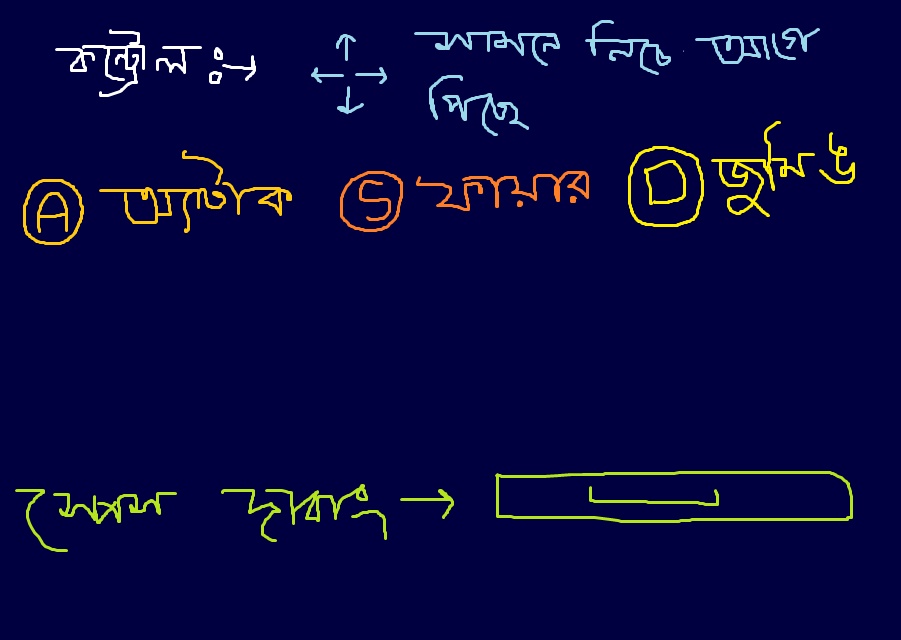 কন্ট্রোল :→ ↑ ← → ↓ সামনে নিচে আগে
পিছে
A অ্যাটাক S ফায়ার D জুমিঙ
স্পেস →